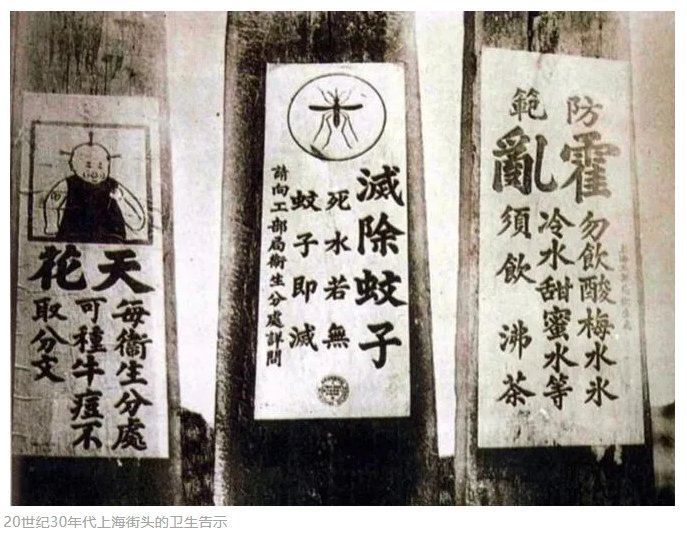 天花
每衞生分處
可種牛痘不
取分文
滅除蚊子
死水若無
蚊子即滅
請向工部局衞生分處詳問
防範
霍亂
勿飲酸梅水氷
冷水甜蜜水等
須飲沸茶
20世纪30年代上海街头的卫生告示